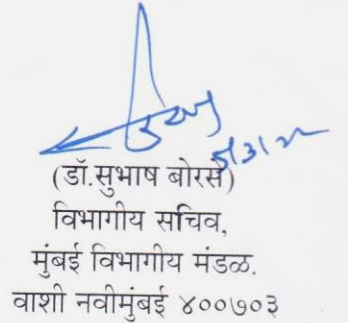 (डॉ.सुभाष बोरसे)
विभागीय सचिव,
मुंबई विभागीय मंडळ.
वाशी नवीमुंबई ४००७०३